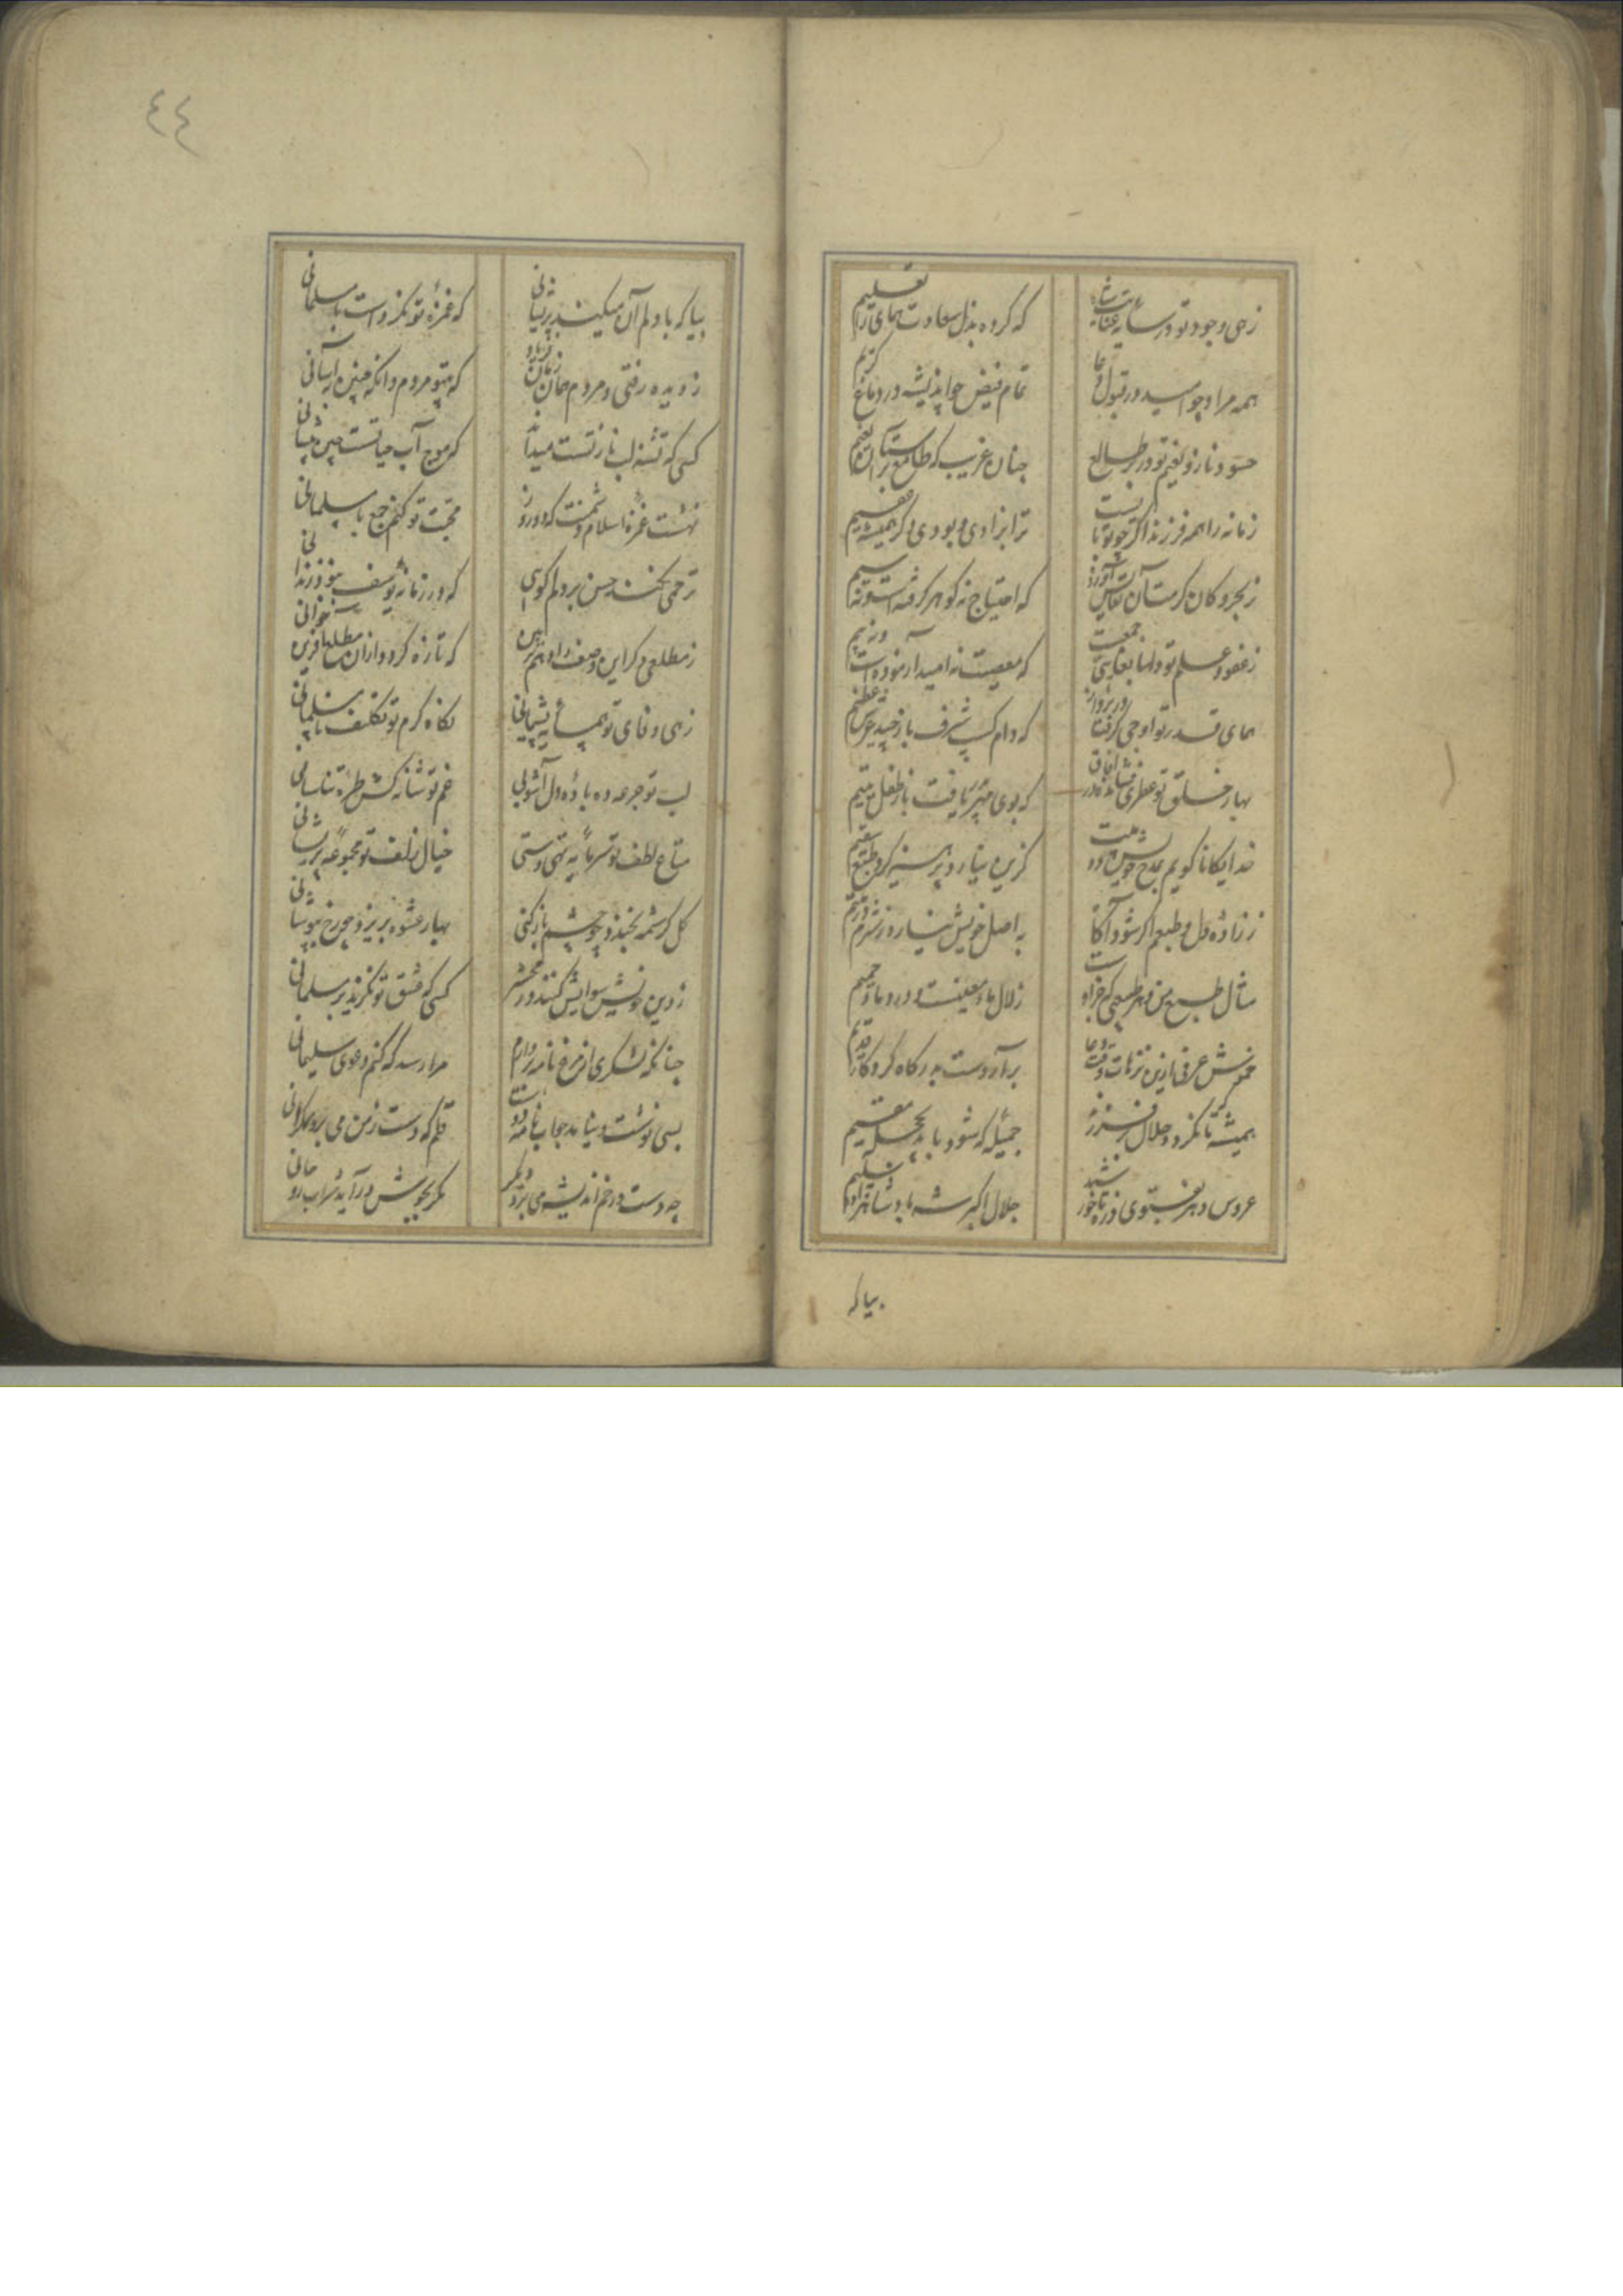 زهی وجود تو در سایه عنایت شاه
که کرده بذل سعادت همای را تعلیم
همه مراد چو امید در قبول دعا
تمام فیض چو اندیشه در دماغ کریم
حسود و ناز و نعیم تو در بر طالع
چنان غریب که طامع بر آستان نعیم
زمانه را همه فرزند اگر چو تو بایست
ترا بزادی و بودی دگر همیشه عقیم
ز بحر و کان کرمت آن
که احتیاج نه گوهر گرفته است و نه سیم
ز عفو و علم تو دلها بغایتی جمعست
که معصیت نه امید آزموده است و نه بیم
همای قدر تو اوجی گرفته در پرواز
که دام کسب شرف باز چید عرش عظیم
بهار خلق تو عطری فشانده در آفاق
که بوی مهر پدر یافت باز طفل یتیم
خدایگانا گویم بمدح خویش دو بیت
گزین نیارد پرهیز کرد طبع سقیم
ز زاده دل و طبعم اگر شود آگاه
به اصل خویش نیارد ز شرم در یتیم
مثال طبع من و هر طبیعتی که جز اوست
زلال ماء معینست و درد ماء حمیم
خموش عرفی ازین ترهات وقت دعاست
برآر دست به درگاه کردگار قدیم
همیشه تا نگردد جلال
جمیله که شود باید بحجله مقیم
عروس دهر بفتوی ذره تا خورشید
جلال اکبر شه باد و شاهزاده سلیم
بیا که
٤٤
بیا که با دلم آن میکند پریشانی
که غمزه تو نکردست با مسلمانی
ز دیده رفتی و مردم همان زمان فریاد
که بیتو مردم و آنگه چنین به آسانی
کسی که تشنه لب ناز تست میداند
که موج آب حیاتست چین پیشانی
نهشت غمزه اسلام دشمنت که دو روز
محبت تو کنم جمع با مسلمانی
ترحمی نکند حسن بر دلم گویی
که در زمانه یوسف نبوده زندانی
ز مطلعی دگر این وصف را دهم تزیین
که تازه گردد از آن مطلع آفرین خوانی
زهی وفای تو همسایه پشیمانی
نگاه گرم تو تکلیف نامسلمانی
لب تو جرعه ده باده دل آشوبی
غم تو شانه کش طره تن آسانی
متاع لطف تو سرمایه تهی دستی
خیال زلف تو مجموعه پریشانی
گل کرشمه بخندد چو چشم باز کنی
بهار عشوه بریزد چو رخ بپوشانی
ز دین خویش سوالش کنند در محشر
کسی که عشق تو نگزید بر مسلمانی
چنانکه لشکری از مرغ نامه بر دارم
مرا رسد که کنم دعوی سلیمانی
بسی نوشت و نیامد جواب نامه دوست
قلم که دست ز من می برد بگریانی
چه دست در خم اندیشه می برد دیگر
مگر بجوش درآید شراب روحانی